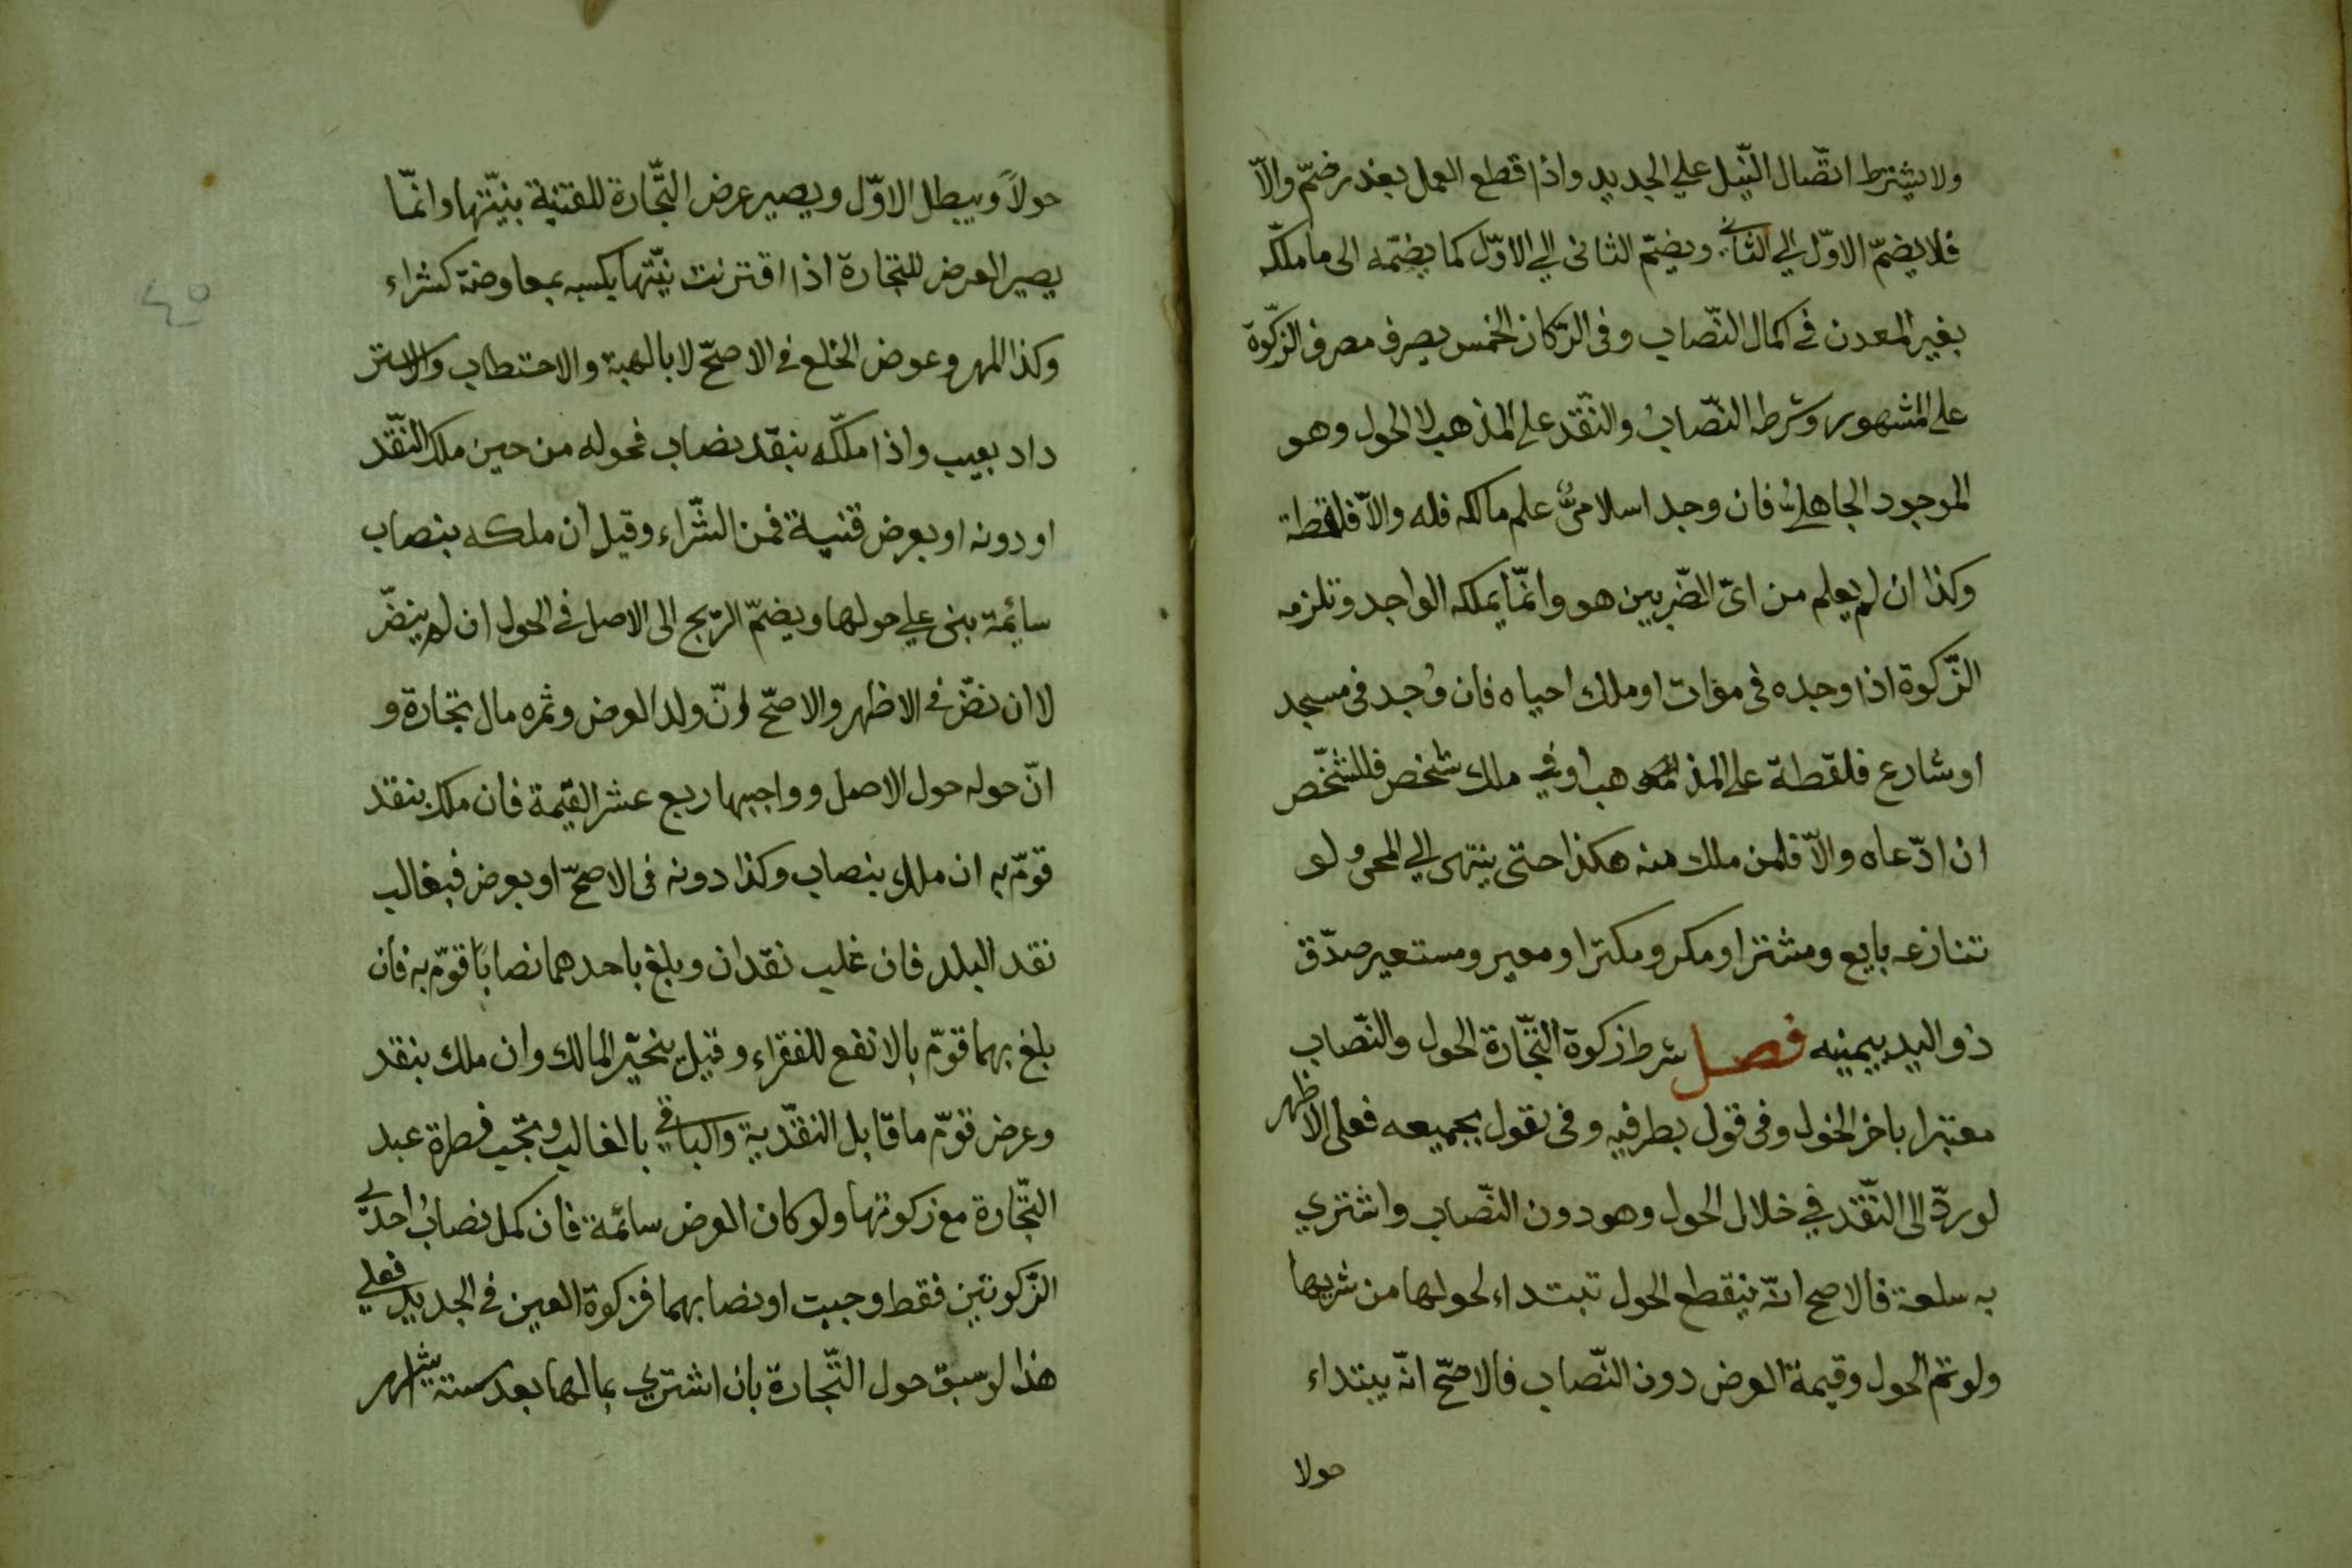 ولا يشترط اتّصال النّيل علي الجديد واذا قطع العمل بعذر ضمّ والاّ
فلا يضمّ الاوّل الي الثاني ويضمّ الثاني الي الاوّل كما يضمّه الى ما ملكه
بغير المعدن في اكمال النّصاب وفى الرّكاز الخمس يصرف مصرف الزّكوة
على المشهور وشرطه النّصابُ والنّقد على المذهب لا الحول وهو
الموجود الجاهلىّ فان وجد اسلامىٌّ علم مالكه فله والاّ فلقطة
وكذا ان لم يعلم من اىّ الضّربين هو وانّما يملكه الواجد وتلزمه
الزّكوة اذا وجده فى موات او ملك احياه فان وُجد فى مسجد
او شارع فلقطة على المذهب او في ملك شخص فللشّخص
ان ادّعاه والاّ فلمن ملك منه هكذا حتى ينتهى الي المحى ولو
تنازعه بايع ومشتر او مكر ومكتر او معير ومستعير صدّق
ذو اليد بيمينه فصل شرط زكوة التّجارة الحول والنّصاب
معتبرا باخر الحول وفى قول بطرفيه وفى قول بجميعه فعلى الاظهر
لو ردّ الى النّقد في خلال الحول وهو دون النّصاب واشتري
به سلعة فالاصح انّه ينقطع الحول تبتداء لحولها من شريها
ولو تمّ الحول وقيمة العرض دون النّصاب فالاصحّ انّه يبتداء
حولا
حولاً ويبطل الاوّل ويصير عرض التّجارة للقنية بنيّتها وانّما
يصير العرض للتجارة اذا اقترنت نيّتها بكسبه بمعاوضة كشراء
وكذا المهر وعوض الخلع في الاصحّ لا بالهبة والاحتطاب والاستر
داد بعيب واذا ملكه بنقد نصاب فحوله من حين ملك النّقد
او دونه او بعرض قنية فمن الشّراء وقيل ان ملكه بنصاب
سائمة بنى علي حولها ويضمّ الرّبح الى الاصل في الحول ان لم ينضّ
لا ان نضّ في الاظهر والاصحّ انّ ولد العرض وثمره مال تجارة و
انّ حوله حول الاصل وواجبها ربع عشر القيمة فان ملك بنقد
قوّم به ان ملك بنصاب وكذا دونه فى الاصحّ او بعرض فبغالب
نقد البلد فان غلب نقدان وبلغ باحدهما نصابًا قوّم به فان
بلغ بهما قوّم بالانفع للفقراء وقيل يتخيّر المالك وان ملك بنقد
وعرض قوّم ما قابل النقّد به والباقي بالغالب وتجب فطرة عبد
التّجارة مع زكوتها ولو كان العرض سائمة فان كمل نصابُ احدى
الزّكوتين فقط وجبت او نصابهما فزكوة العين في الجديد فعلي
هذا لو سبق حول التّجارة بان اشتري بمالها بعد ستة اشهر